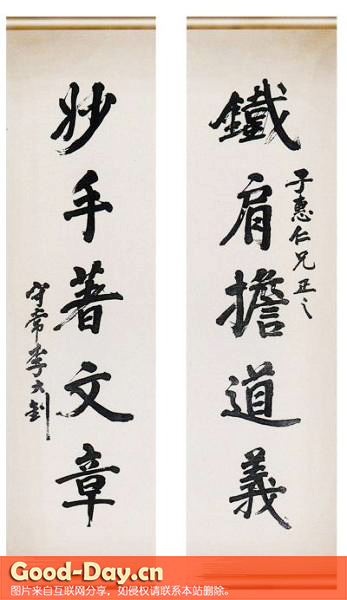 鐵肩擔道義
子惠仁兄正之
妙手著文章
守常李大釗
Good-Day.cn
图片来自互联网分享，如侵权请联系本站删除。